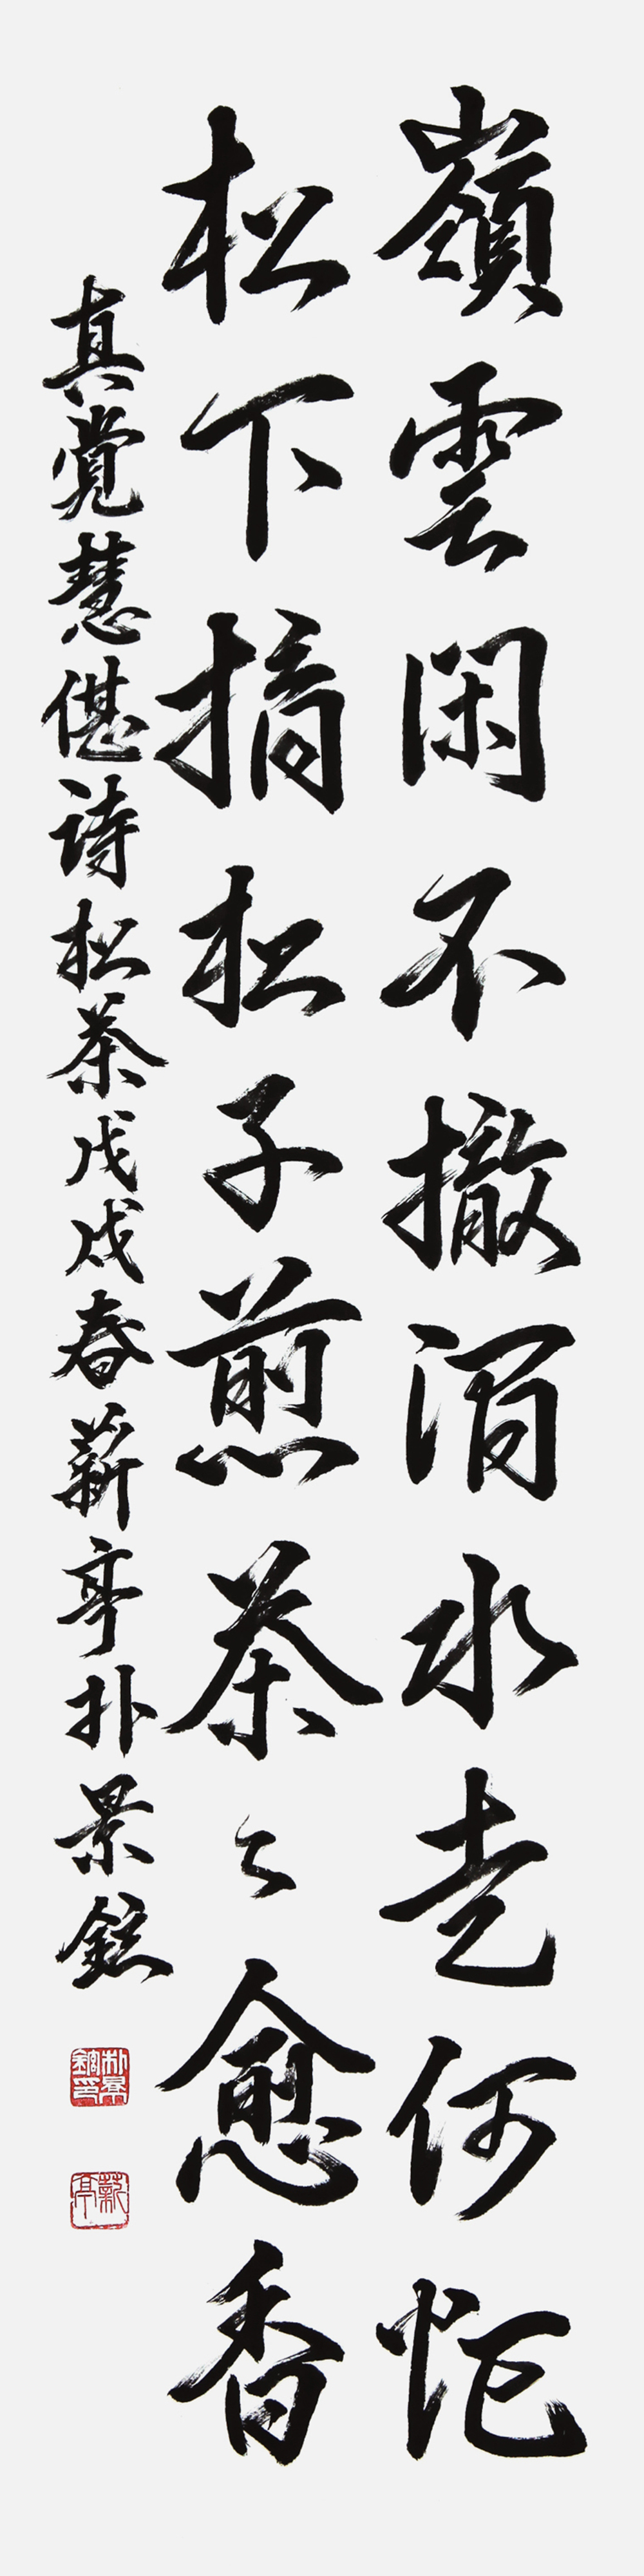 嶺雲閑不撤澗水走何忙
松下摘松子煎茶々愈香
真覚慧諶詩松茶戊戌春薪亭朴景
朴景印
薪亭